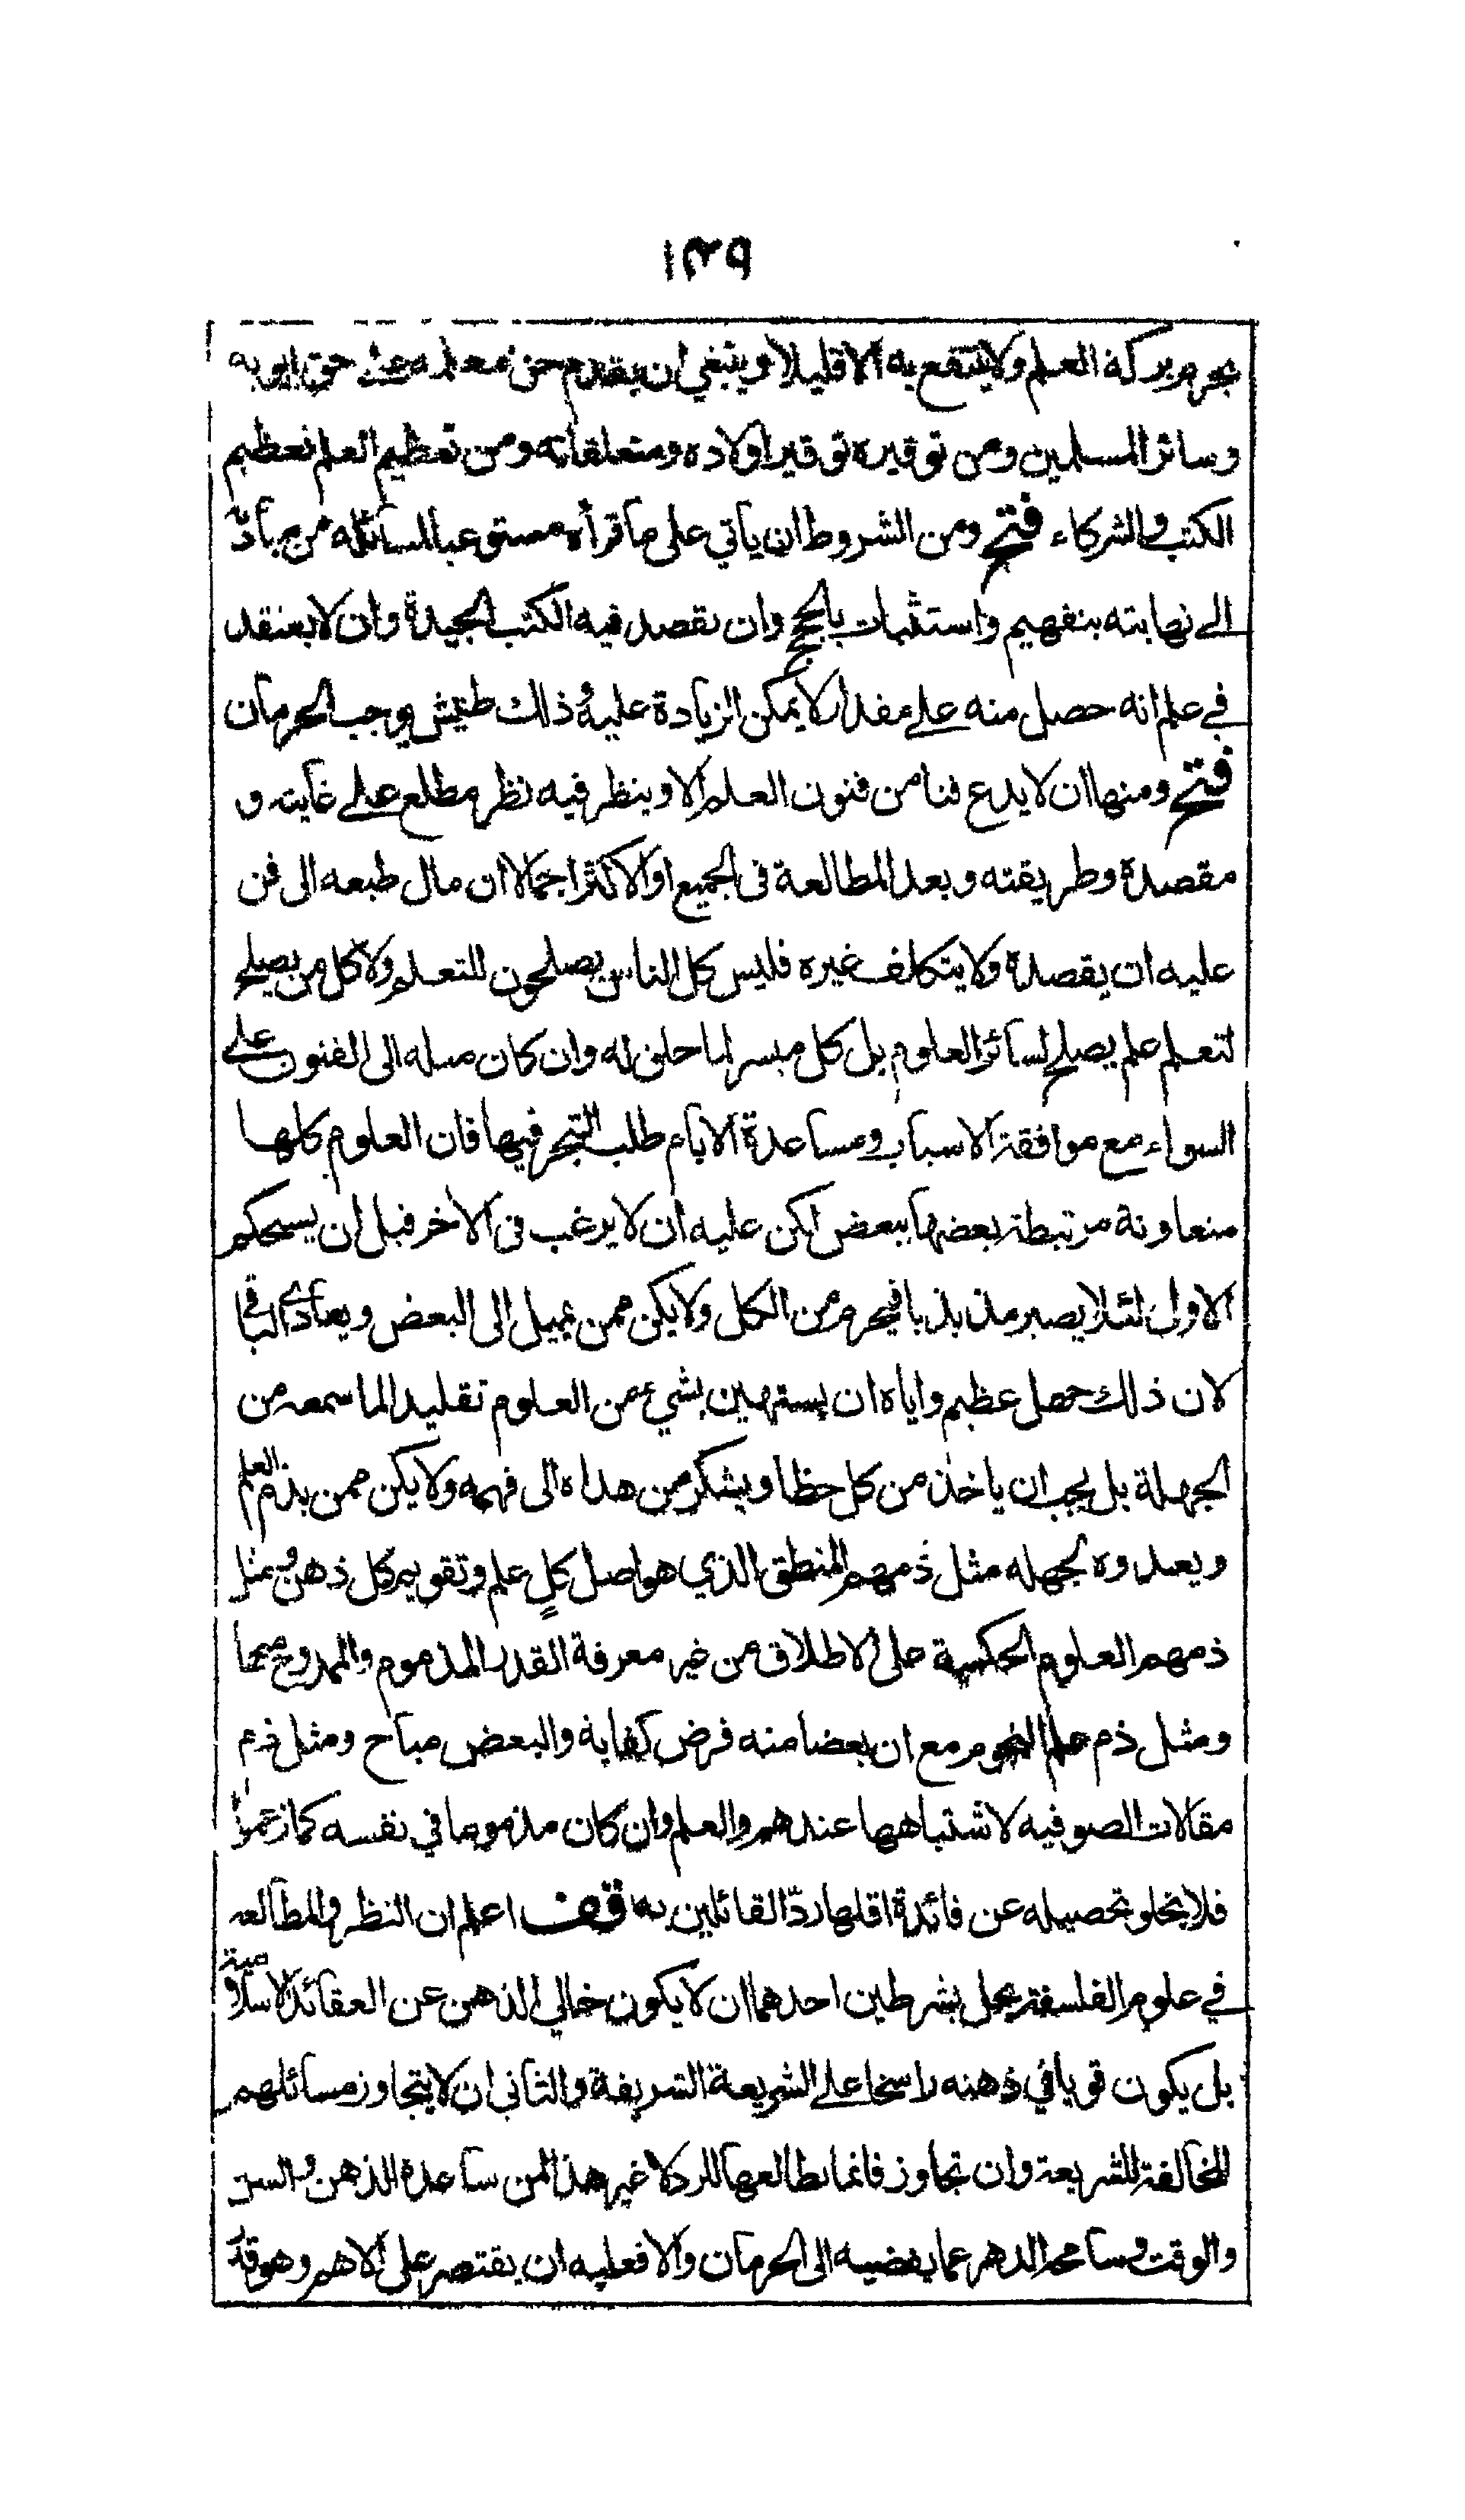 ١٣٩
يحرم بركة العلم ولا ينتفع به الا قليلا وينبغي ان يقدم حق معلمه على حق ابويه
وسائر المسلمين ومن توقيره توقير اولاده ومتعلقاته ومن تعظيم العلم تعظيم
الكتب والشركاء فتح ومن الشروط ان يأتي على ما قرأه مستوعبا لمسائله من مبادئه
الى نهايته بتفهيم واستثبات بالحجج وان يقصد فيه الكتب الجيدة وان لا يعتقد
في علم انه حصل منه على مقدار لا يمكن الزيادة عليه وذلك طيش يوجب الحرمان
فتح ومنها ان لا يدع فنا من فنون العلم الا وينظر فيه نظر مطلع على غايته و
مقصده وطريقته وبعد المطالعة في الجميع او الاكثر اجمالا ان مال طبعه الى فن
عليه ان يقصده ولا يتكلف غيره فليس كل الناس يصلحون للتعلم ولا كل من يصلح
لتعلم علم يصلح لسائر العلوم بل كل ميسر لما خلق له وان كان ميله الى الفنون على
السواء مع موافقة الاسباب ومساعدة الايام طلب التبحر فيها فان العلوم كلها
متعاونة مرتبطة بعضها ببعض لكن عليه ان لا يرغب في الاخر قبل ان يستحكم
الاول لئلا يصير مذبذبا فيحرم من الكل ولا يكن ممن يميل الى البعض ويعادي الباقي
لان ذلك جهل عظيم واياه ان يستهين بشيء من العلوم تقليدا لما سمعه من
الجهلة بل يجب ان ياخذ من كل حظا ويشكر من هداه الى فهمه ولا يكن ممن يذم العلم
ويعدوه لجهله مثل ذمهم المنطق الذي هو اصل كل علم وتقويم كل ذهن ومثل
ذمهم العلوم الحكمية على الاطلاق من غير معرفة القدر المذموم والممدوح منها
ومثل ذم علم النجوم مع ان بعضا منه فرض كفاية والبعض مباح ومثل ذم
مقالات الصوفيه لاشتباهها عندهم والعلم وان كان مذموما في نفسه كما زعموا
فلا يخلو تحصيله عن فائدة اقلها ردّ القائلين به قف اعلم ان النظر والمطالعه
في علوم الفلسفة يحل بشرطين احدهما ان لا يكون خالي الذهن عن العقائد الاسلامية
بل يكون قويا في ذهنه راسخا على الشريعة الشريفة والثاني ان لا يتجاوز مسائلهم
المخالفة للشريعة وان تجاوز فانما يطالعها للرد لا غير هذا لمن ساعده الذهن والسن
والوقت وسامحه الدهر عما يفضيه الى الحرمان والا فعليه ان يقتصر على الاهم وهو قدر